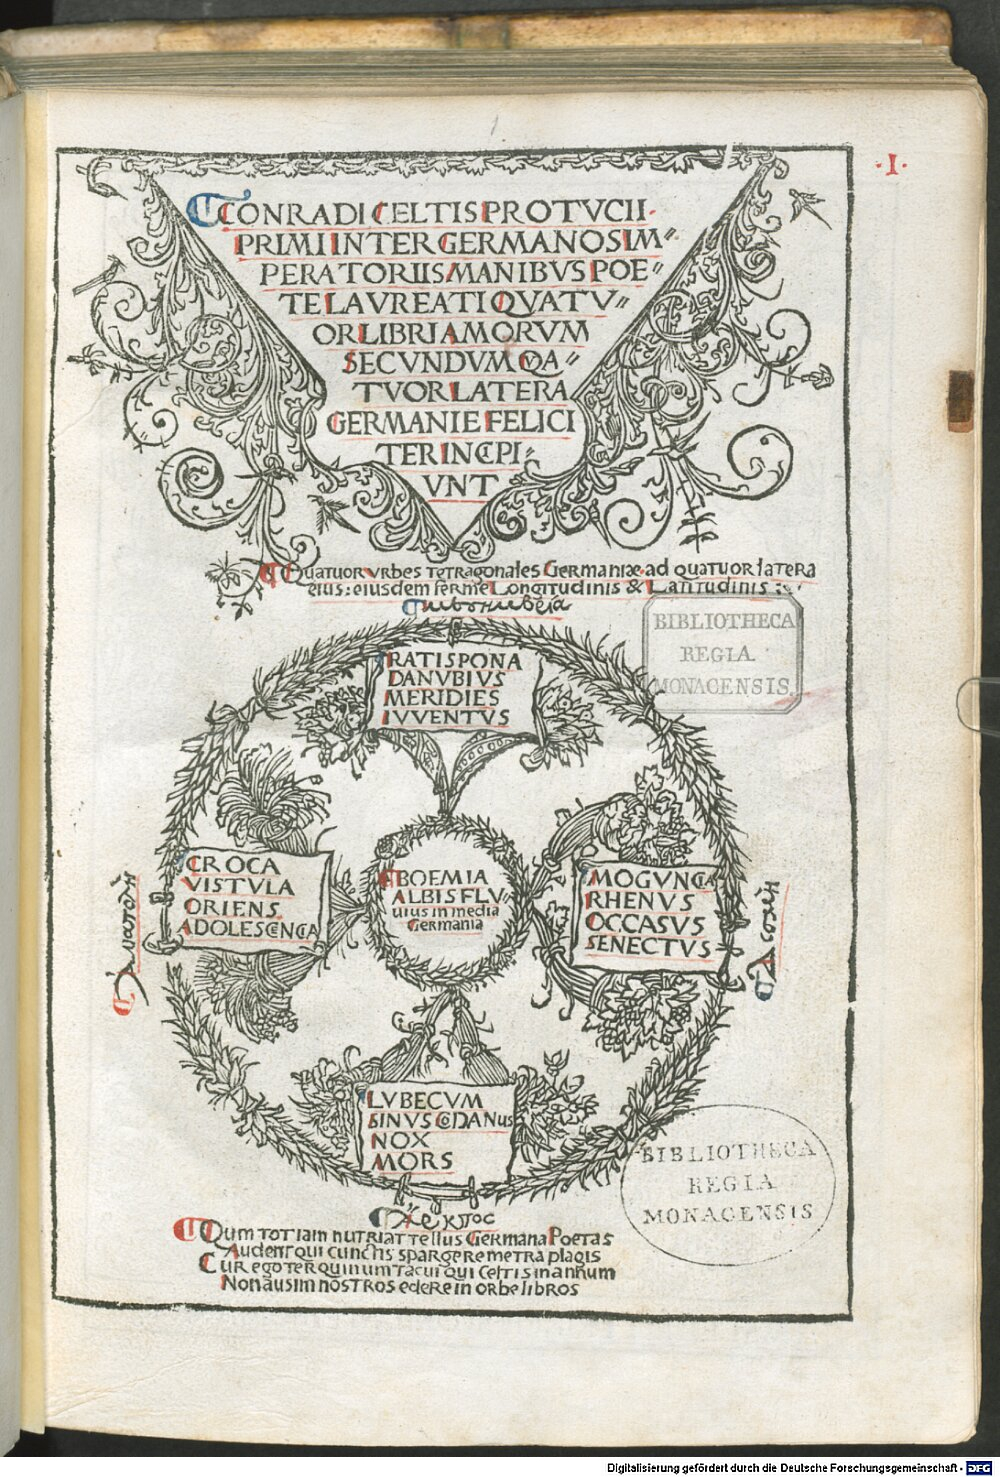 1
·I·
CONRADI CELTIS PROTVCII·
PRIMI INTER GERMANOS IM⸗
PERATORIIS MANIBVS POE⸗
TE LAVREATI QVATV⸗
OR LIBRI AMORVM
SECVNDVM QVA⸗
TVOR LATERA
GERMANIE FELICI
TER INCIPI⸗
VNT
Quatuor vrbes tetragonales Germaniæ ad quatuor latera
eius: eiusdem ferme Longitudinis & Latitudinis :
BIBLIOTHECA
REGIA
MONACENSIS.
RATISPONA
DANVBIVS
MERIDIES
IVVENTVS
CROCA
VISTVLA
ORIENS
ADOLESCENCIA
BOEMIA
ALBIS FLV⸗
uius in media
Germania
MOGVNCIA
RHENVS
OCCASVS
SENECTVS
LVBECVM
SINVS CODANus
NOX
MORS
BIBLIOTHECA
REGIA
MONACENSIS
Dum tot iam nutriat tellus Germana Poetas
Audent qui cunctis spargere metra plagis
Cur ego ter quinum tacui qui Celtis in annum
Non ausim nostros edere in orbe libros
Digitalisierung gefördert durch die Deutsche Forschungsgemeinschaft - DFG